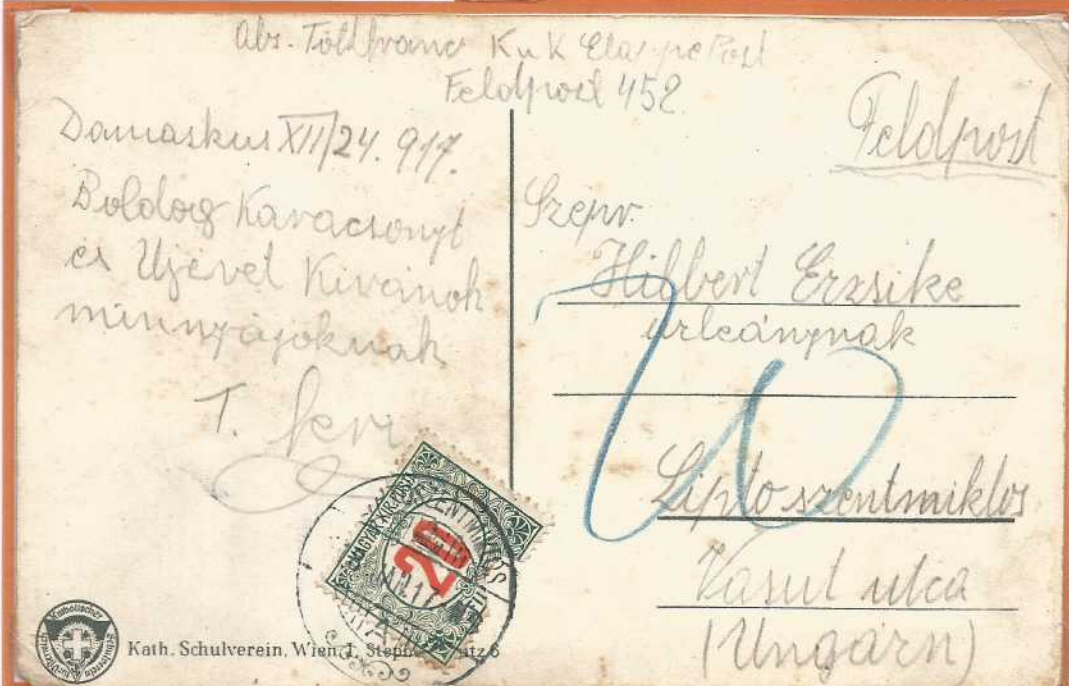 Abs. Tóth Ivanc K u K Etappe Post
Feldpost 452
Feldpost
Damaskus XII/24. 917.
Boldog Karacsonyt
és Ujevet Kivánok
minnyájoknak
T. Feri
Szepr.
Hilbert Erzsike
urleánynak
Lipto szentmiklos
Vasut utca
(Ungarn)
MAGYAR KIR. POSTA
20
Kath. Schulverein, Wien, I. Steph